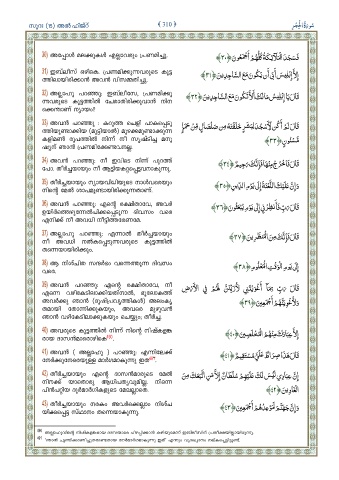 സൂറ: (15) അൽ-ഹിജ്ർ
﴾ 310 ﴿
سُورَةُ الْحِجْرِ
30) അപ്പോൾ മലക്കുകൾ എല്ലാവരും പ്രണമിച്ചു.
فَسَجَدَ الْمَلَائِكَةُ كُلُّهُمْ أَجْمَعُونَ ﴿٣٠﴾
31) ഇബ്ലീസ് ഒഴികെ. പ്രണമിക്കുന്നവരുടെ കൂട്ട
ത്തിലായിരിക്കാൻ അവൻ വിസമ്മതിച്ചു.
إِلَّا إِبْلِيسَ أَبَىٰ أَن يَكُونَ مَعَ السَّاجِدِينَ ﴿٣١﴾
32) അല്ലാഹു പറഞ്ഞു: ഇബ്ലീസേ, പ്രണമിക്കു
ന്നവരുടെ കൂട്ടത്തിൽ ചേരാതിരിക്കുവാൻ നിന
ക്കെന്താണ് ന്യായം?
قَالَ يَا إِبْلِيسُ مَا لَكَ أَلَّا تَكُونَ مَعَ السَّاجِدِينَ ﴿٣٢﴾
33) അവൻ പറഞ്ഞു : കറുത്ത ചെളി പാകപ്പെടു
ത്തിയുണ്ടാക്കിയ (മുട്ടിയാൽ) മുഴക്കമുണ്ടാക്കുന്ന
കളിമൺ രൂപത്തിൽ നിന്ന് നീ സൃഷ്ടിച്ച മനു
ഷ്യന് ഞാൻ പ്രണമിക്കേണ്ടവനല്ല.
قَالَ لَمْ أَكُن لِّأَسْجُدَ لِبَشَرٍ خَلَقْتَهُ مِن صَلْصَالٍ مِّنْ حَمَإٍ
مَّسْنُونٍ ﴿٣٣﴾
34) അവൻ പറഞ്ഞു: നീ ഇവിടെ നിന്ന് പുറത്ത്
പോ. തീർച്ചയായും നീ ആട്ടിയകറ്റപ്പെട്ടവനാകുന്നു.
قَالَ فَاخْرُجْ مِنْهَا فَإِنَّكَ رَجِيمٌ ﴿٣٤﴾
35) തീർച്ചയായും ന്യായവിധിയുടെ നാൾവരെയും
നിന്റെ മേൽ ശാപമുണ്ടായിരിക്കുന്നതാണ്.
وَإِنَّ عَلَيْكَ اللَّعْنَةَ إِلَىٰ يَوْمِ الدِّينِ ﴿٣٥﴾
36) അവൻ പറഞ്ഞു: എന്റെ രക്ഷിതാവേ, അവർ
ഉയിർത്തെഴുന്നേൽപിക്കപ്പെടുന്ന ദിവസം വരെ
എനിക്ക് നീ അവധി നീട്ടിത്തരേണമേ.
قَالَ رَبِّ فَأَنظِرْنِي إِلَىٰ يَوْمِ يُبْعَثُونَ ﴿٣٦﴾
37) അല്ലാഹു പറഞ്ഞു: എന്നാൽ തീർച്ചയായും
നീ അവധി നൽകപ്പെടുന്നവരുടെ കൂട്ടത്തിൽ
തന്നെയായിരിക്കും.
قَالَ فَإِنَّكَ مِنَ الْمُنظَرِينَ ﴿٣٧﴾
38) ആ നിശ്ചിത സന്ദർഭം വന്നെത്തുന്ന ദിവസം
വരെ.
إِلَىٰ يَوْمِ الْوَقْتِ الْمَعْلُومِ ﴿٣٨﴾
39) അവൻ പറഞ്ഞു: എന്റെ രക്ഷിതാവേ, നീ
എന്നെ വഴികേടിലാക്കിയതിനാൽ, ഭൂലോകത്ത്
അവർക്കു ഞാൻ (ദുഷ്പ്രവൃത്തികൾ) അലംകൃ
തമായി തോന്നിക്കുകയും, അവരെ മുഴുവൻ
ഞാൻ വഴികേടിലാക്കുകയും ചെയ്യും; തീർച്ച.
قَالَ رَبِّ بِمَا أَغْوَيْتَنِي لَأُزَيِّنَنَّ لَهُمْ فِي الْأَرْضِ
وَلَأُغْوِيَنَّهُمْ أَجْمَعِينَ ﴿٣٩﴾
40) അവരുടെ കൂട്ടത്തിൽ നിന്ന് നിന്റെ നിഷ്കളങ്ക
രായ ദാസൻമാരൊഴികെ
إِلَّا عِبَادَكَ مِنْهُمُ الْمُخْلَصِينَ ﴿٤٠﴾
41) അവൻ ( അല്ലാഹു ) പറഞ്ഞു: എന്നിലേക്ക്
നേർക്കുനേരെയുള്ള മാർഗമാകുന്നു ഇത്
قَالَ هَٰذَا صِرَاطٌ عَلَيَّ مُسْتَقِيمٌ ﴿٤١﴾
42) തീർച്ചയായും എന്റെ ദാസൻമാരുടെ മേൽ
നിനക്ക് യാതൊരു ആധിപത്യവുമില്ല. നിന്നെ
പിൻപറ്റിയ ദുർമാർഗികളുടെ മേലല്ലാതെ.
إِنَّ عِبَادِي لَيْسَ لَكَ عَلَيْهِمْ سُلْطَانٌ إِلَّا مَنِ اتَّبَعَكَ مِنَ
الْغَاوِينَ ﴿٤٢﴾
43) തീർച്ചയായും നരകം അവർക്കെല്ലാം നിശ്ച
യിക്കപ്പെട്ട സ്ഥാനം തന്നെയാകുന്നു.
وَإِنَّ جَهَنَّمَ لَمَوْعِدُهُمْ أَجْمَعِينَ ﴿٤٣﴾